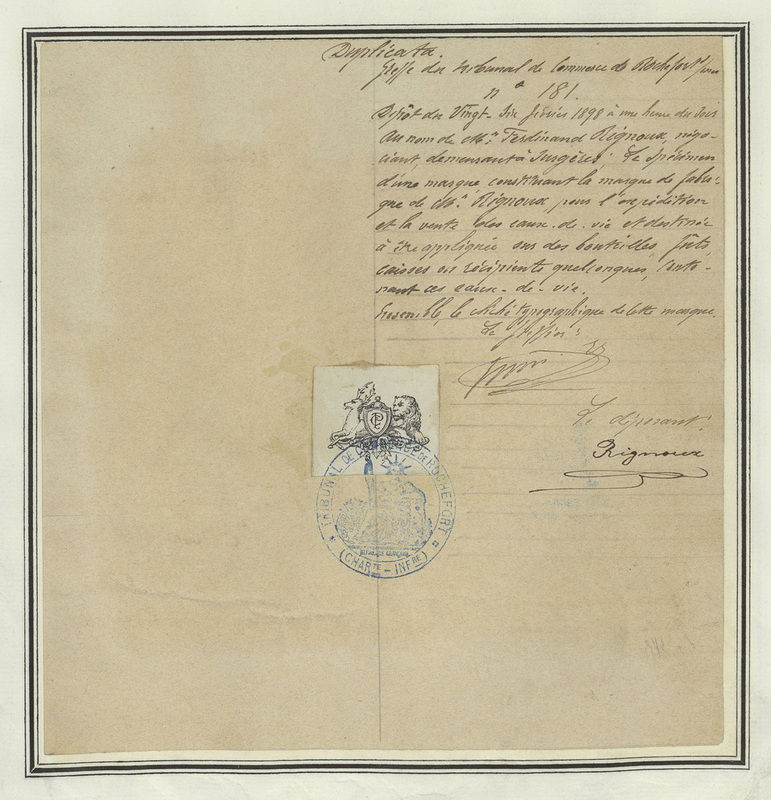 Duplicata.
Greffe du tribunal de Commerce de Rochefort s/mer
n° 181.
Dépôt du Vingt-six février 1898 à une heure du soir
Au nom de Mr. Ferdinand Rignoux, négo-
ciant, demeurant à Surgères; Le spécimen
d'une marque constituant la marque de fabri-
que de Mr. Rignoux, pour l'expédition
et la vente des eaux-de-vie et destinée
à être appliquée sur des bouteilles, fûts,
caisses ou récipients quelconques, conte-
nant ces eaux-de-vie.
Ensemble, le cliché typographique de cette marque.
Le Greffier:
Le déposant:
Rignoux
TRIBUNAL DE COMMERCE DE ROCHEFORT
(CHARTE - INFRE)